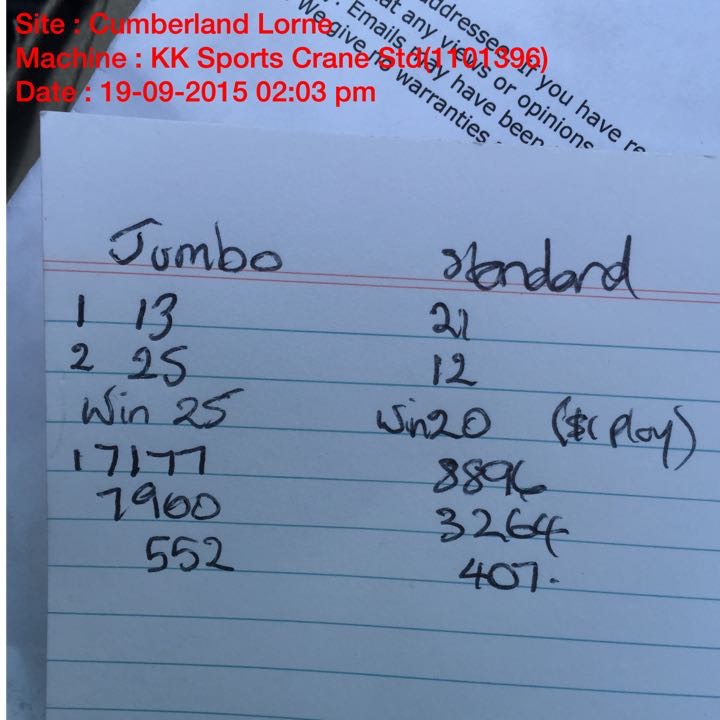 Site : Cumberland Lorne
Machine : KK Sports Crane Std(1101396)
Date : 19-09-2015 02:03 pm
addresses If you have re
at any views or opinions
. Emails may have been
We give no warranties
Jumbo Standard
1 13 21
2 25 12
Win 25 Win 20 ($1 play)
17177 8896
7960 3264
552 407.